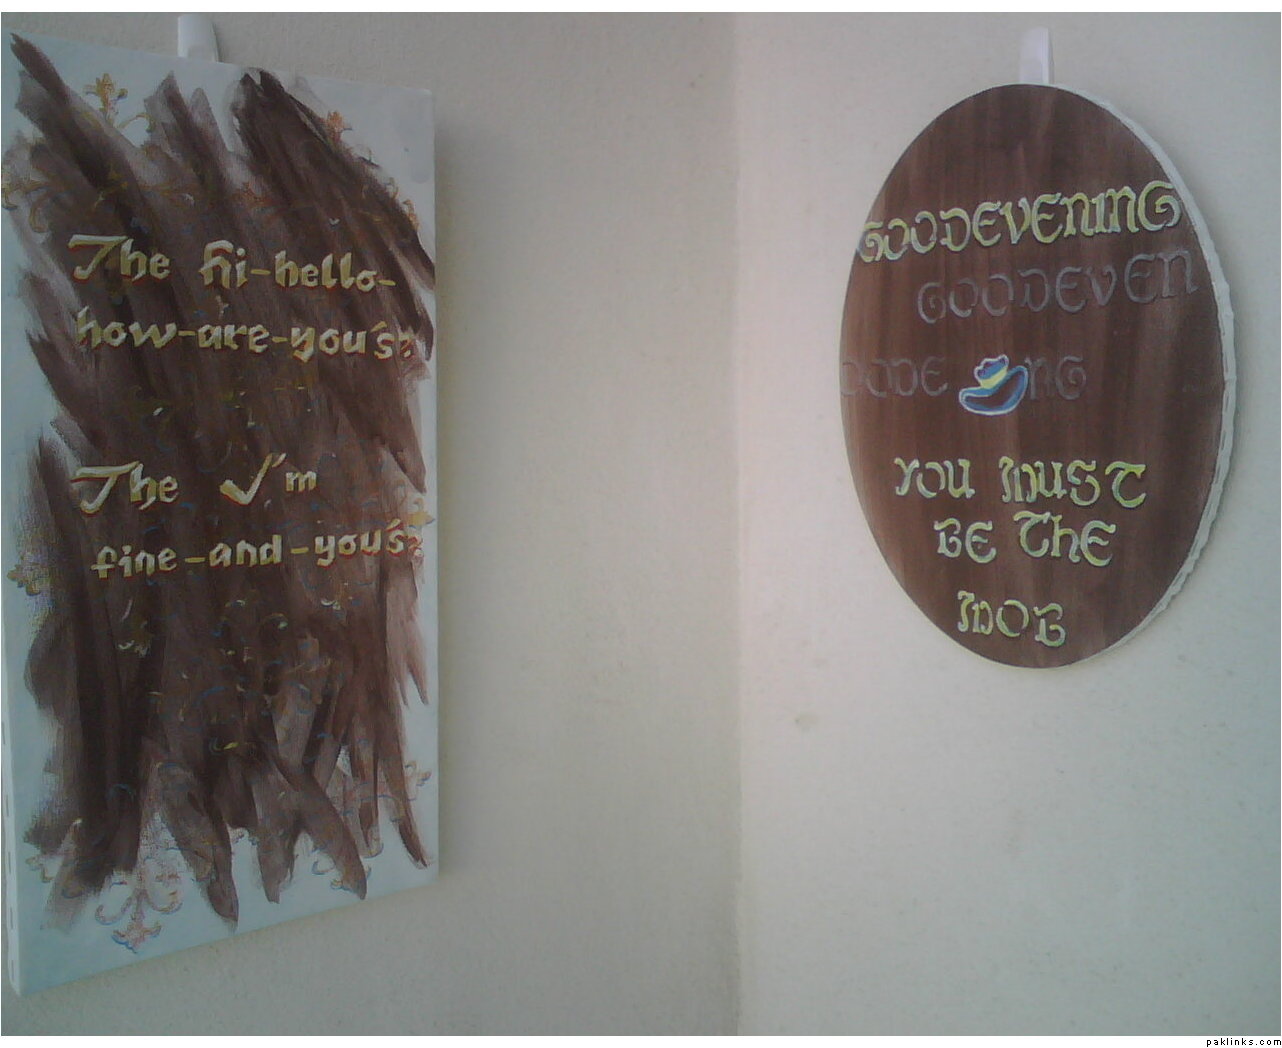 The hi-hello-
how-are-you's?
The I'm
fine-and-you's?
GOODEVENING
GOODEVEN
OODE NG
YOU MUST
BE THE
MOB
paklinks.com